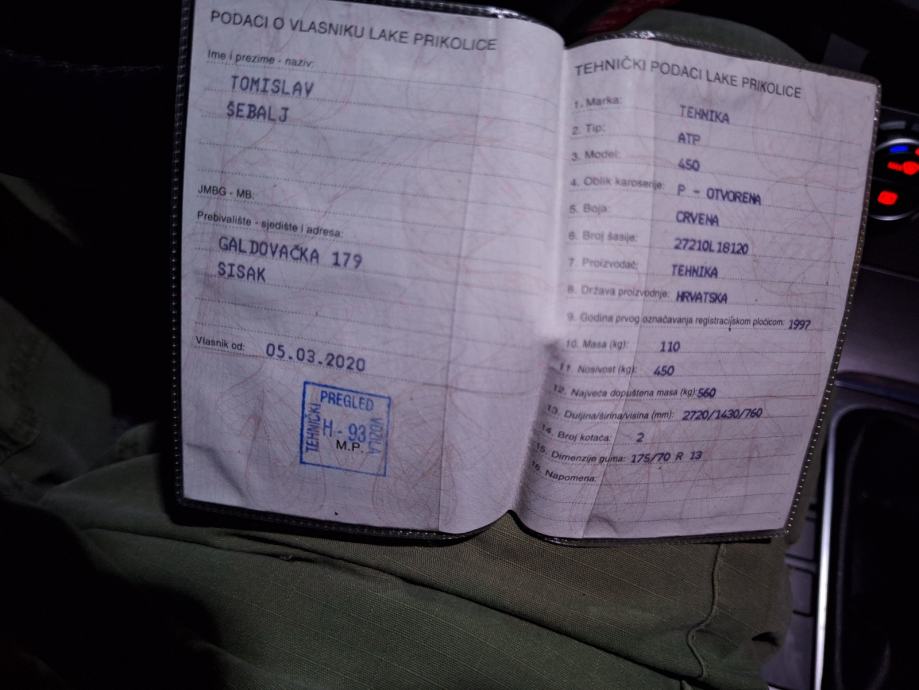 PODACI O VLASNIKU LAKE PRIKOLICE
Ime i prezime - naziv:
TOMISLAV
ŠEBALJ
JMBG - MB:
Prebivalište - sjedište i adresa:
GALDOVAČKA 179
SISAK
Vlasnik od: 05.03.2020
PREGLED
TEHNIČKI
H - 93
VOZILA
M.P.
TEHNIČKI PODACI LAKE PRIKOLICE
1. Marka: TEHNIKA
2. Tip: ATP
3. Model: 450
4. Oblik karoserije: P - OTVORENA
5. Boja: CRVENA
6. Broj šasije: 27210L18120
7. Proizvođač: TEHNIKA
8. Država proizvodnje: HRVATSKA
9. Godina prvog označavanja registracijskom pločicom: 1997
10. Masa (kg): 110
11. Nosivost (kg): 450
12. Najveća dopuštena masa (kg): 560
13. Duljina/širina/visina (mm): 2720/1430/760
14. Broj kotača: 2
15. Dimenzije guma: 175/70 R 13
16. Napomena: